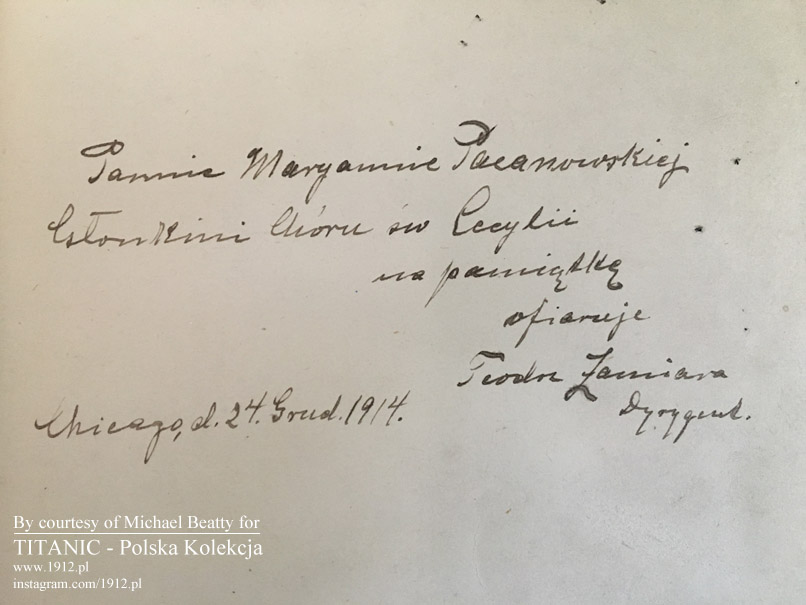 Pannie Maryannie Pacanowskiej
Członkini Chóru św Cecylii
na pamiątkę
ofiaruje
Teodor Zamiara
Dyrygent.
Chicago, d. 24. Grud. 1914.
By courtesy of Michael Beatty for
TITANIC - Polska Kolekcja
www.1912.pl
instagram.com/1912.pl